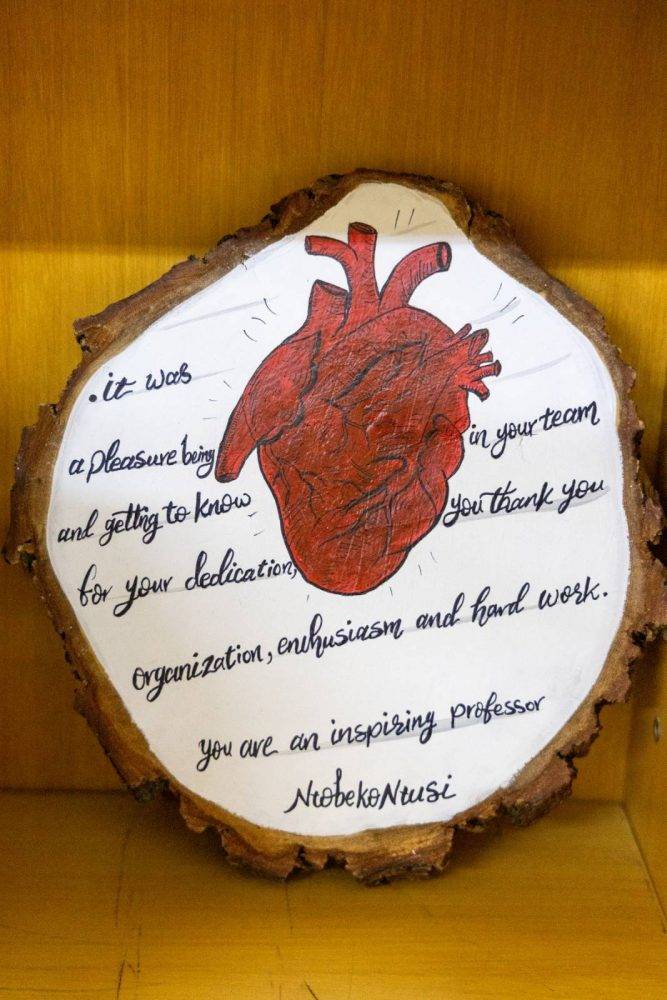 .it was
a pleasure being in your team
and getting to know you thank you
for your dedication,
organization, enthusiasm and hard work.
you are an inspiring professor
Ntobeko Ntusi